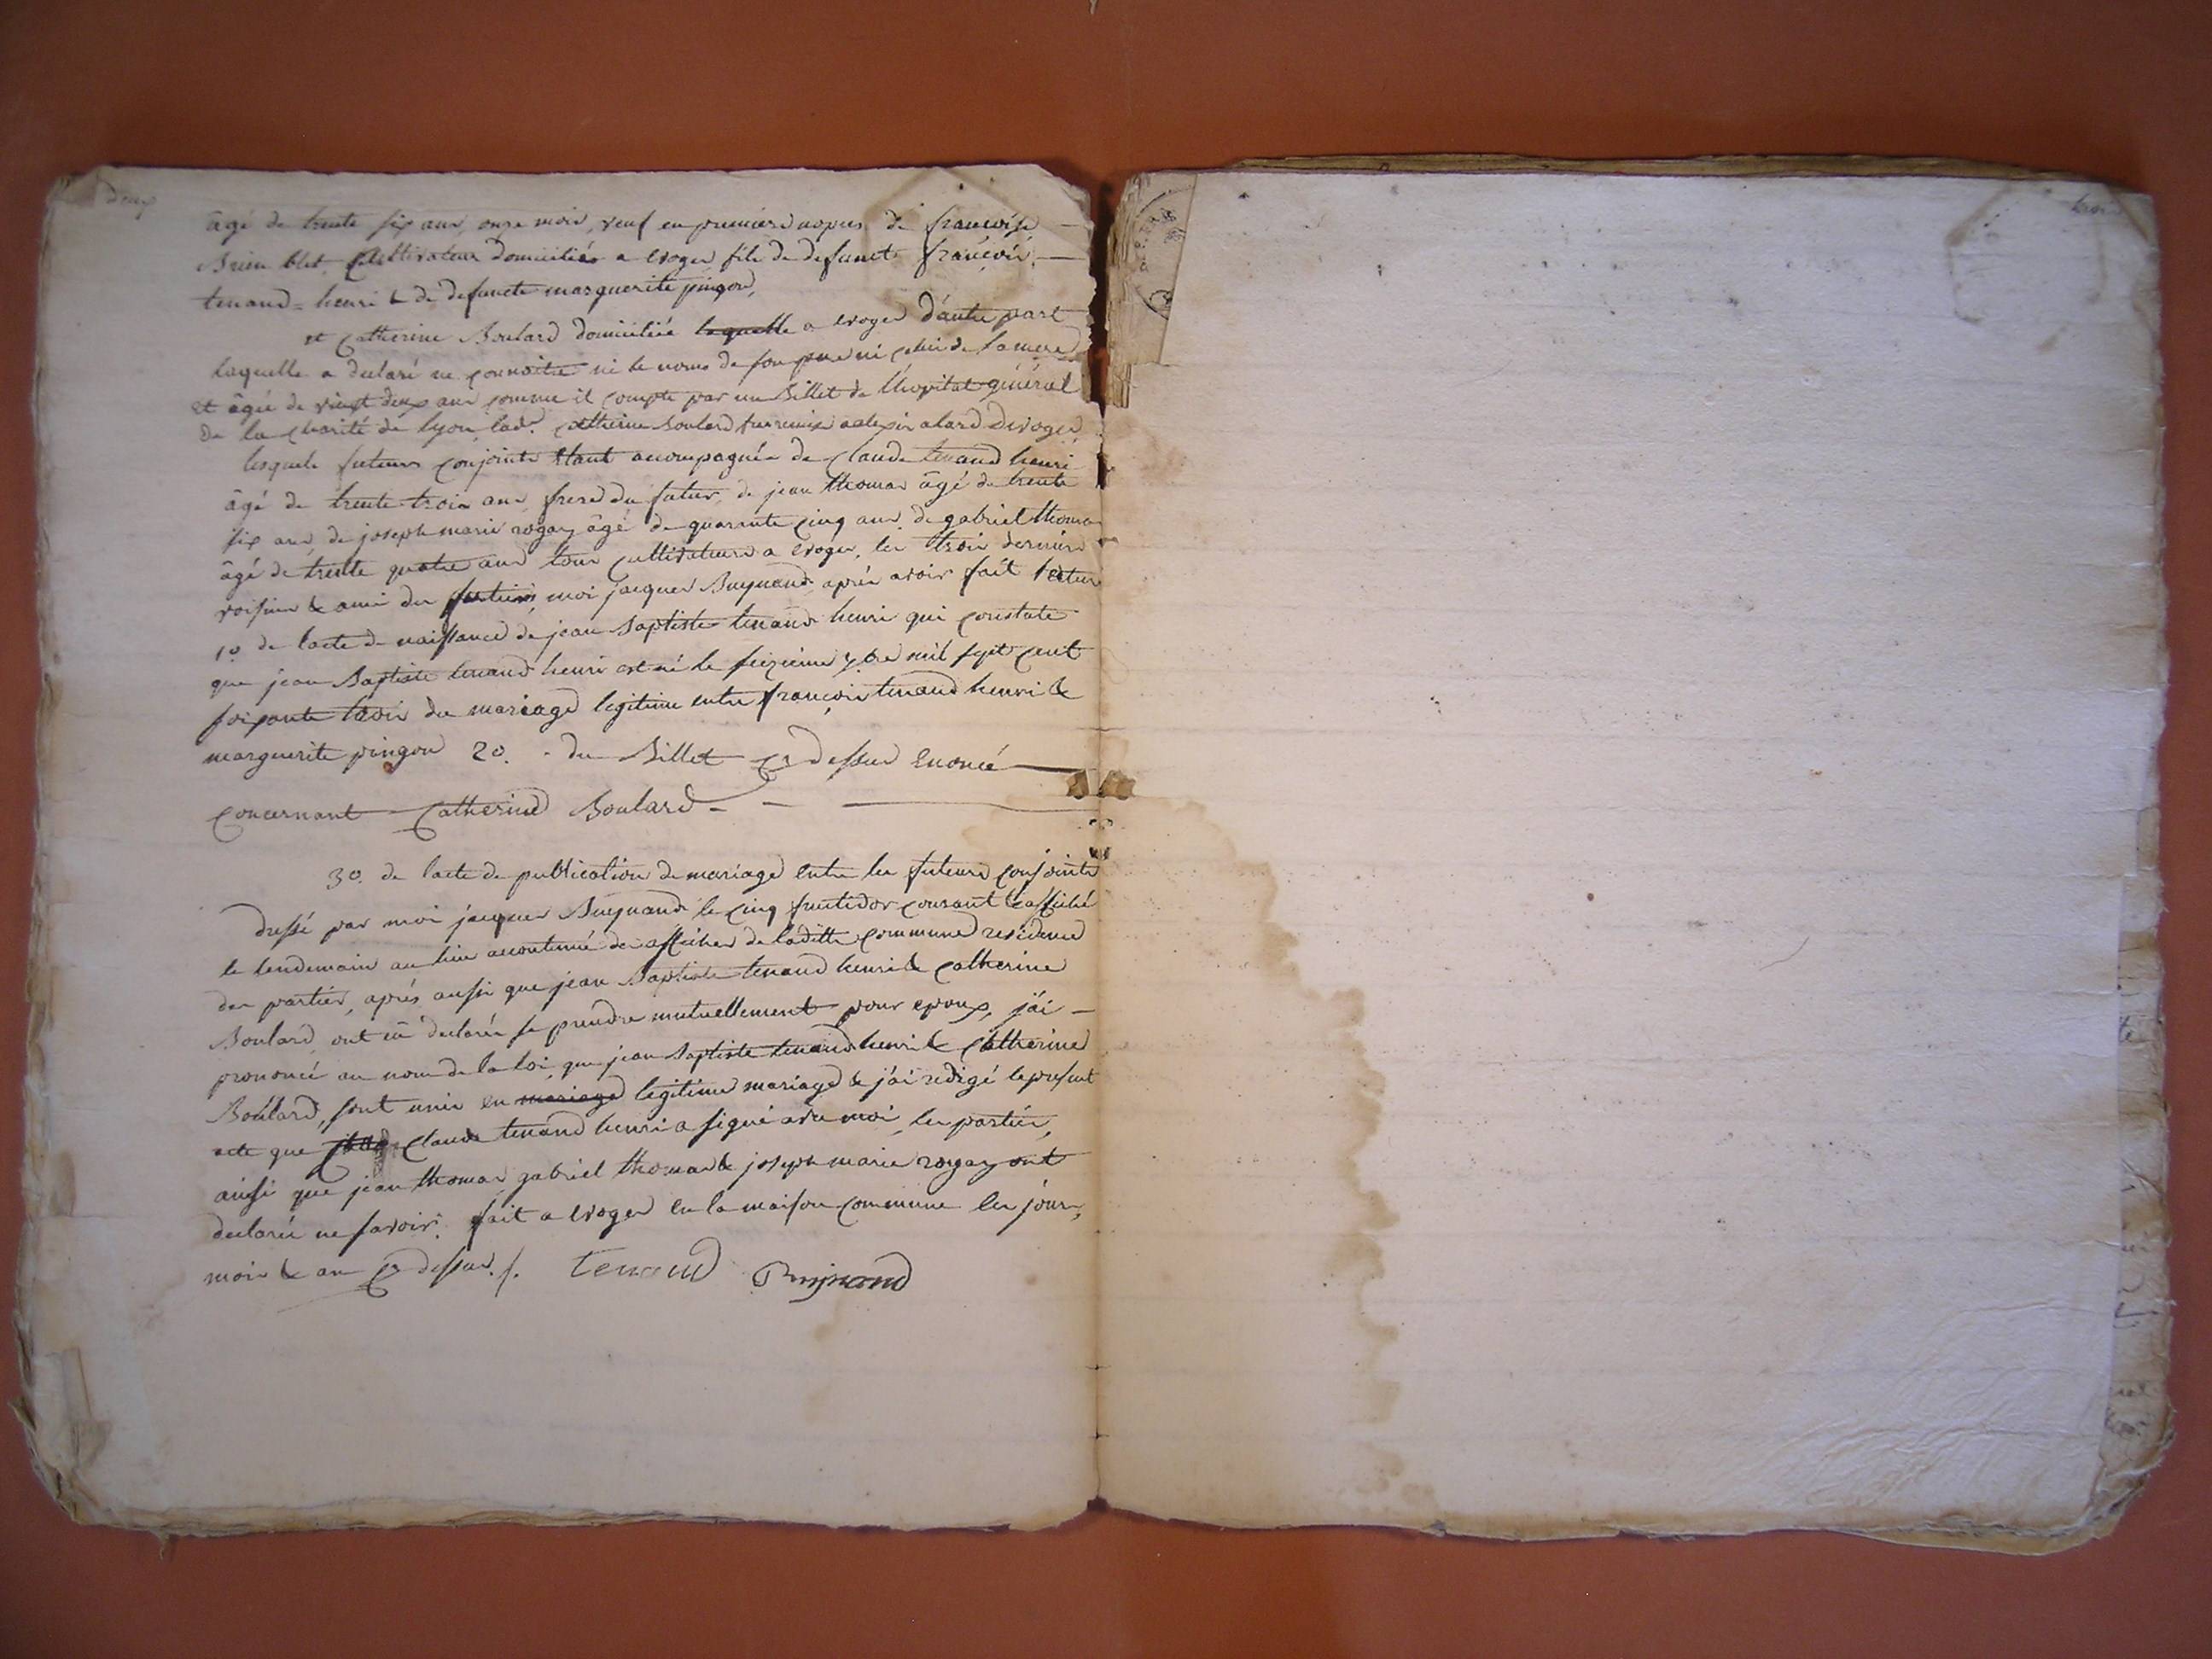 deux
âgé de trente six ans, onze mois, veuf en premieres nopces de françoise
blet, Cultivateur domicilié a evoges fils de defunct françois
tenand-henri & de defuncte marguerite pingon,
et Catherine Boulard domiciliée laquelle a evoges d'autre part
laquelle a declaré ne connoitre ni le noms de son pere ni celui de sa mere
et âgée de vingt deux ans comme il compte par un Billet de l'hopital général
de la charité de lyon, lad. Catherine Boulard
lesquels futeurs conjoints étant accompagnés de Claude tenand henri
âgé de trente trois ans, frere du futur, de jean thomas âgé de trente
six ans, de joseph marie rogay âgé de quarante cinq ans, de gabriel thomas
âgé de trente quatre ans tous cultivateurs a evoges, les trois derniers
voisins & amis des futeurs, moi jacques Buynand après avoir fait lecture
1o. de lacte de naissance de jean Baptiste tenand henri qui constate
que jean Baptiste tenand henri est né le seizieme 7bre mil sept cent
soixante trois du mariage legitime entre françois tenand henri &
marguerite pingon 2o. du Billet cy dessus enoncé
concernant Catherine Boulard
3o. de lacte de publication de mariage entre les futeurs conjoints
dressé par moi jacques Buynand le cinq fructidor courant & affiché
le lendemain au lieu accoutumé des affiches de laditte commune residence
des parties, après aussi que jean Baptiste tenand henri & Catherine
Boulard, ont eû declarés se prendre mutuellement pour epoux, j'ái
prononcé au nom de la loi, que jean Baptiste tenand henri & Catherine
Boulard, sont unis en mariage legitime mariage & j'ái redigé le present
acte que Claude tenand henri a signé avec moi, les parties,
ainsi que jean thomas, gabriel thomas & joseph marie rogay ont
declarés ne savoir. fait a evoges en la maison commune les jour,
mois & an cy dessus. /. Tenand Buynand
trois